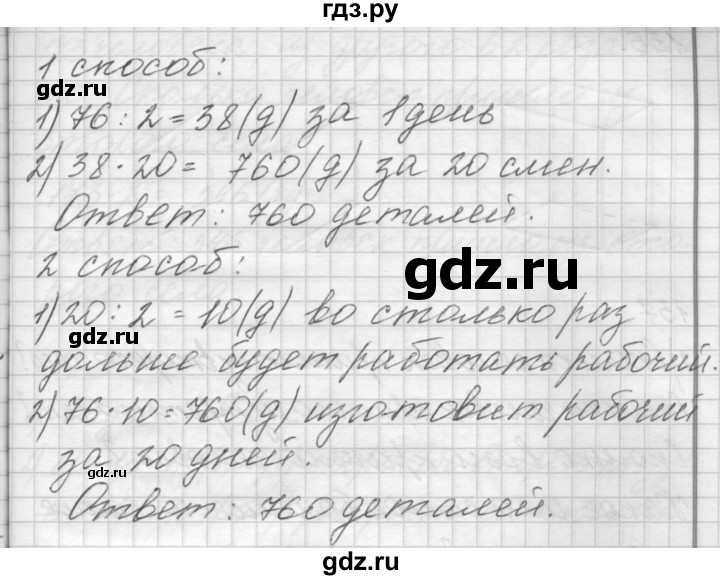 гдз.ру
1 способ:
gdz.ru
1) 76 : 2 = 38 (д) за 1 день
2) 38 · 20 = 760 (д) за 20 смен.
Ответ: 760 деталей.
2 способ:
gdz.ru
1) 20 : 2 = 10 (д) во столько раз
gdz.ru
дольше будет работать рабочий.
2) 76 · 10 = 760 (д) изготовит рабочий
за 20 дней.
gdz.ru
Ответ: 760 деталей.
gdz.ru
gdz.ru